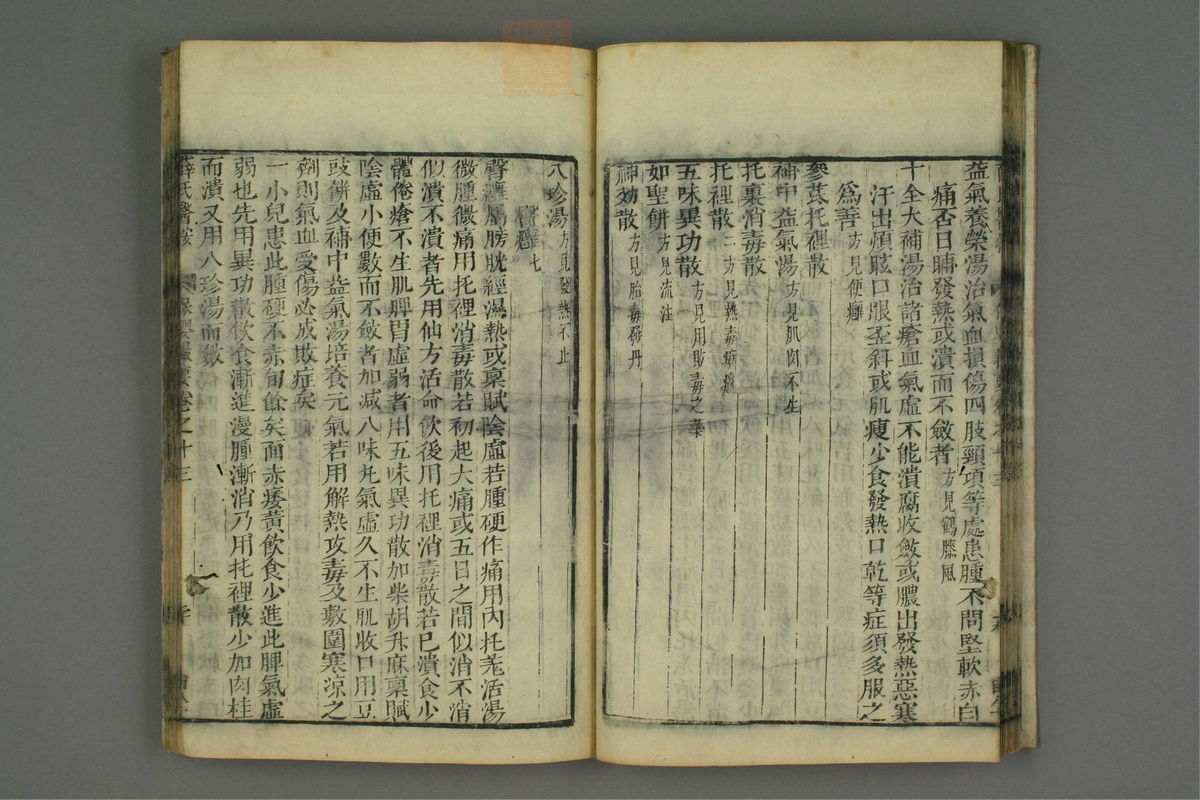 益氣養榮湯治氣血損傷四肢頸項等處患腫不問堅軟赤白
痛否日晡發熱或潰而不斂者方見鶴膝風
十全大補湯治諸瘡血氣虛不能潰腐收斂或膿出發熱惡寒
汗出煩眩口眼歪斜或肌瘦少食發熱口乾等症須多服之
爲善方見便癰
參芪托裡散
補中益氣湯方見肌肉不生
托裏消毒散
托裡散二方見熱毒瘡瘍
五味異功散方見用助毒之藥
如聖餅方見流注
神効散方見胎毒發丹
八珍湯方見發熱不止
臀癰七
臀癰屬膀胱經濕熱或稟賦陰虛若腫硬作痛用內托羌活湯
微腫微痛用托裡消毒散若初起大痛或五日之間似消不消
似潰不潰者先用仙方活命飲後用托裡消毒散若已潰食少
體倦瘡不生肌脾胃虛弱者用五味異功散加柴胡升麻稟賦
陰虛小便數而不斂者加减八味丸氣虛久不生肌收口用豆
豉餅及補中益氣湯培養元氣若用解熱攻毒及敷圍寒涼之
劑則氣血受傷必成敗症矣
一小兒患此腫硬不赤旬餘矣面赤痿黃飲食少進此脾氣虛
弱也先用異功散飲食漸進漫腫漸消乃用托裡散少加肉桂
而潰又用八珍湯而斂
薛氏醫按 保嬰撮要卷之十三